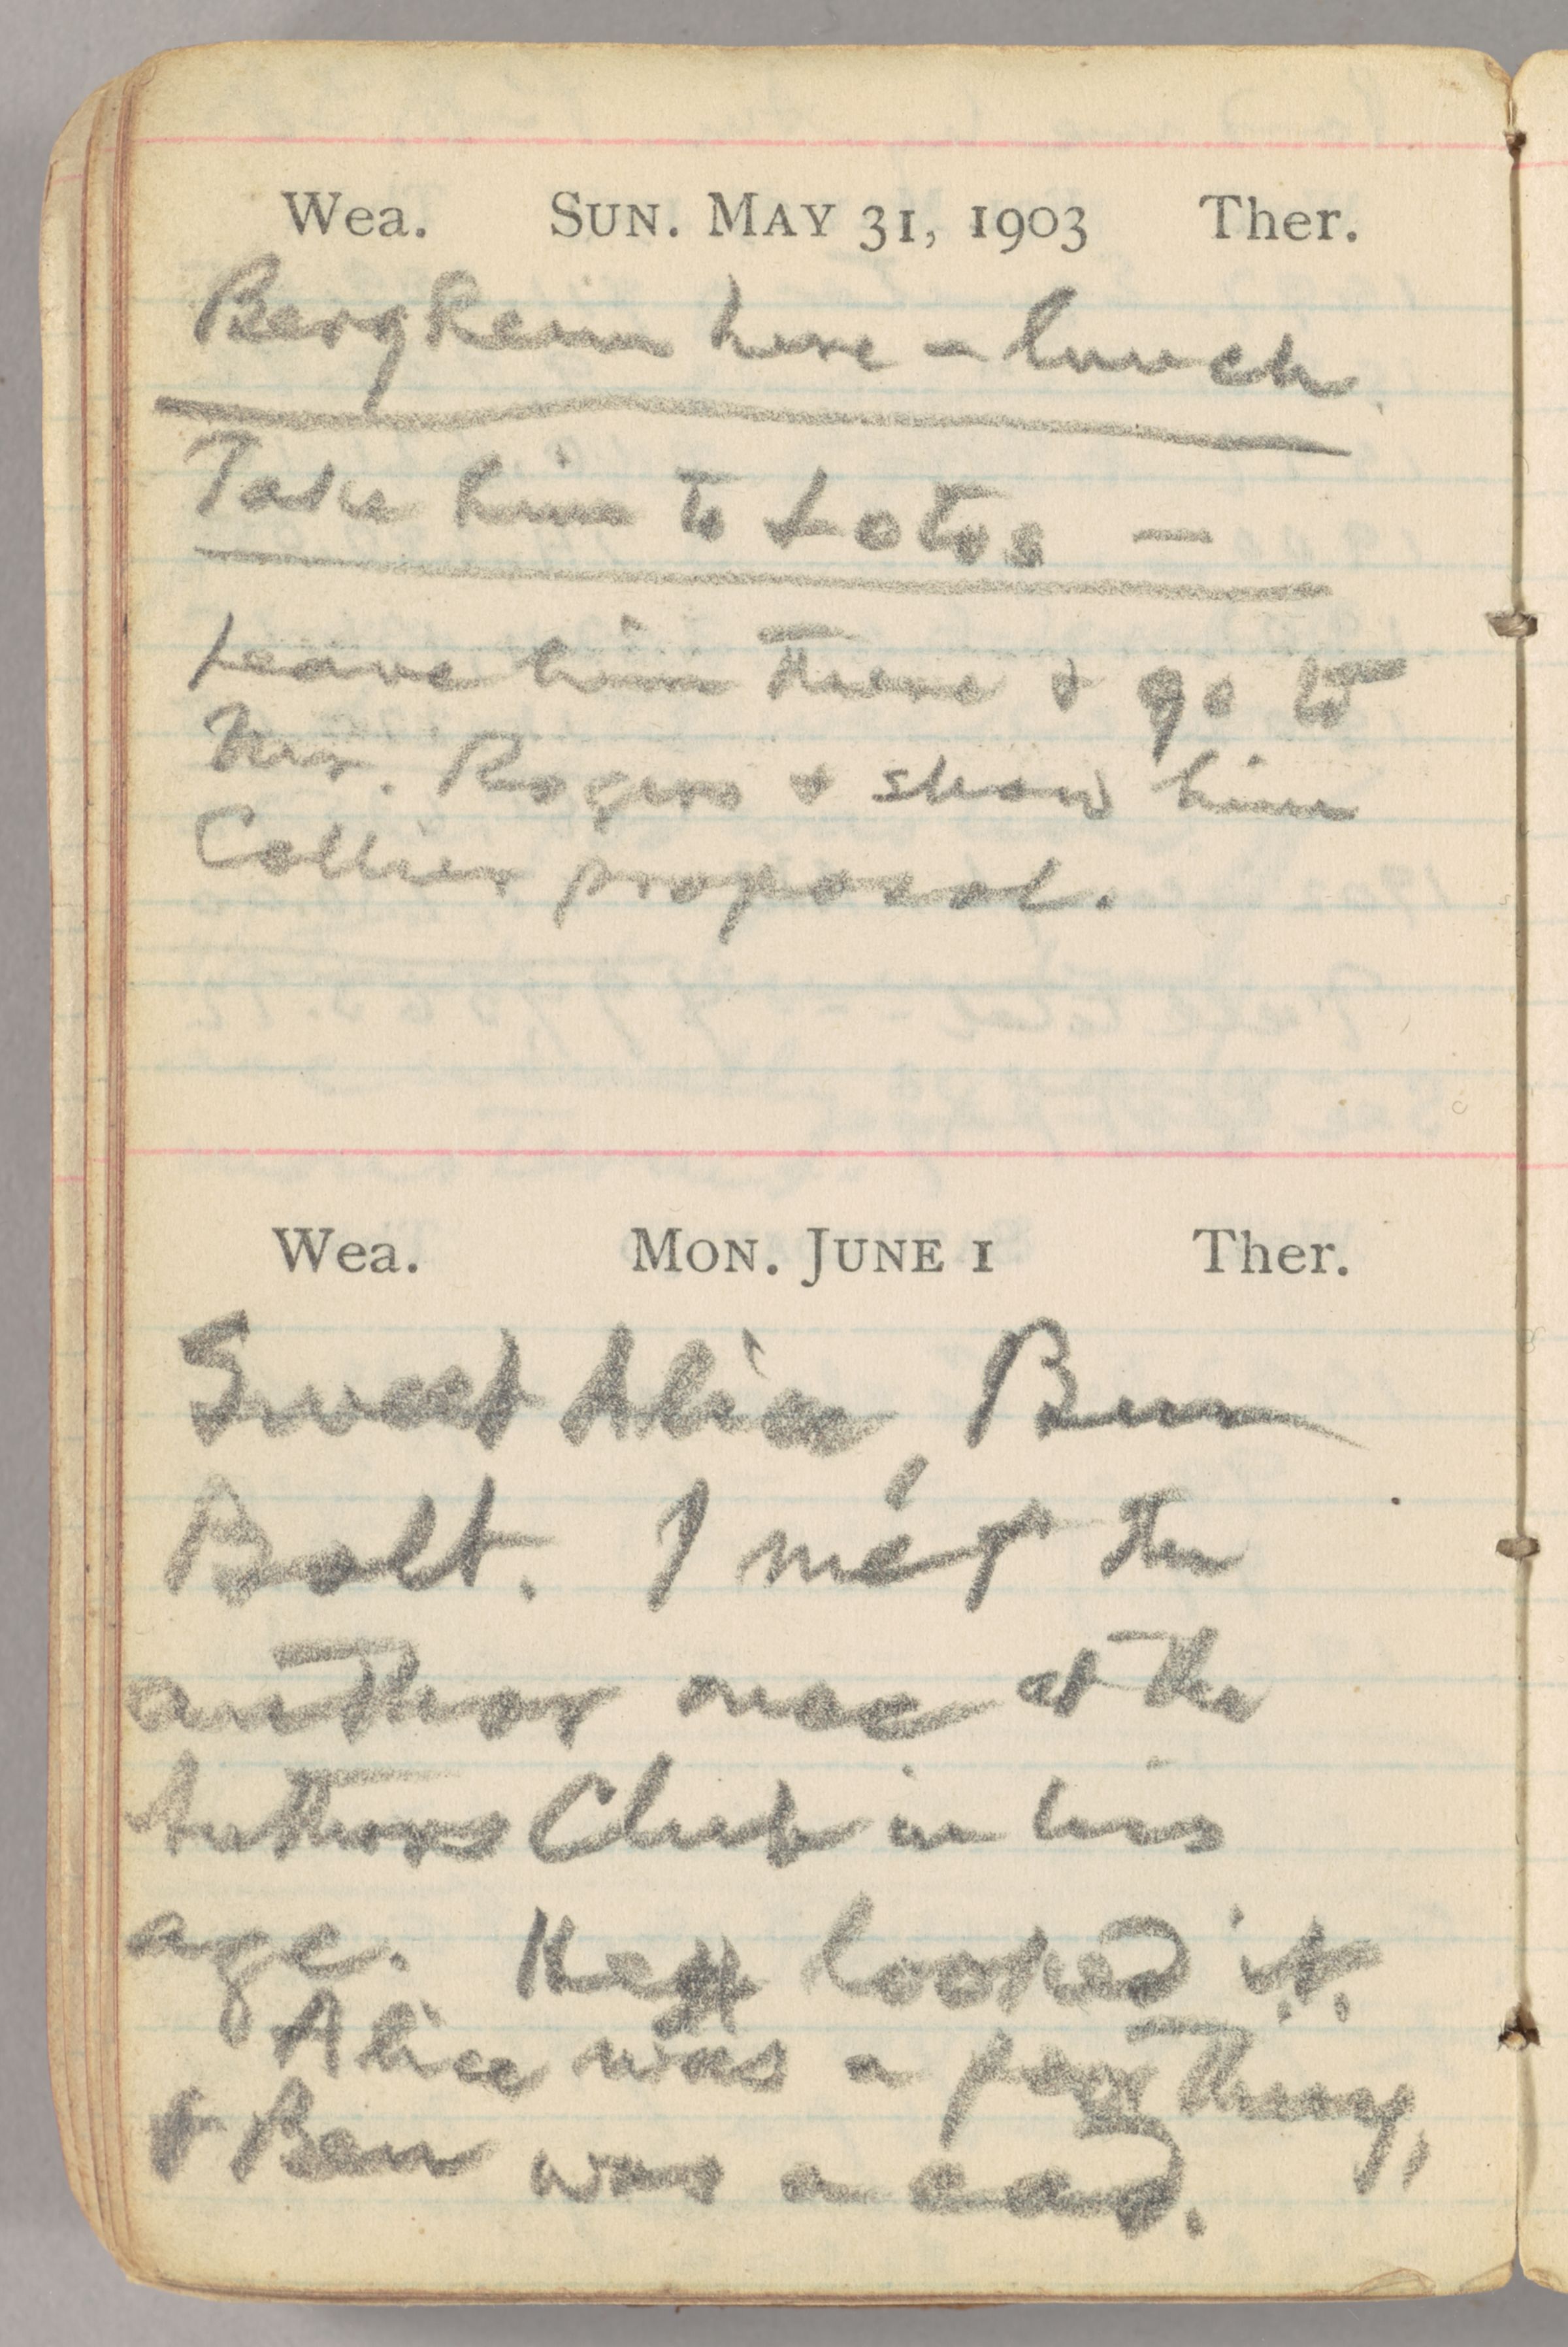 Wea. SUN. MAY 31, 1903 Ther.
Bergheim here – lunch
Take him to Lotos —
Leave him there & go to
Mr. Rogers & show him
Collier proposal.
Wea. MON. JUNE 1 Ther.
Sweet Alice, Ben
Bolt. I met the
author once at the
Authors Club in his
age. He looked it.
Alice was a poor thing,
& Ben was a cad.